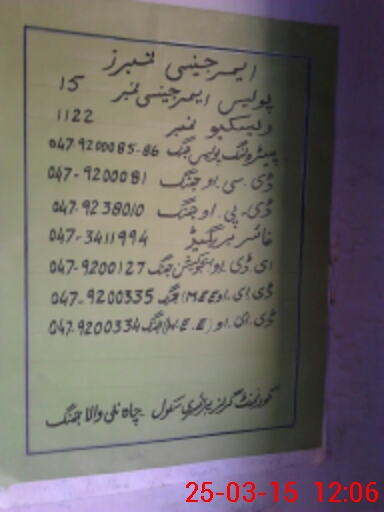 ایمرجینسی نمبرز
پولیس ایمرجینسی نمبر 15
ریسکیو نمبر 1122
پیٹرولنگ پولیس جھنگ 047-9200085-86
ڈی۔سی۔او جھنگ 047-9200081
ڈی۔پی۔او جھنگ 047-9238010
فائر بریگیڈ 047-3411994
ای ڈی۔او ایجوکیشن جھنگ 047-9200127
ڈی۔ای۔او (MEE) جھنگ 047-9200335
ڈی۔ای۔او (W.E.E) جھنگ 047-9200334
گورنمنٹ گرلز پرائمری سکول ۔ چاہ والا جھنگ
25-03-15 12:06